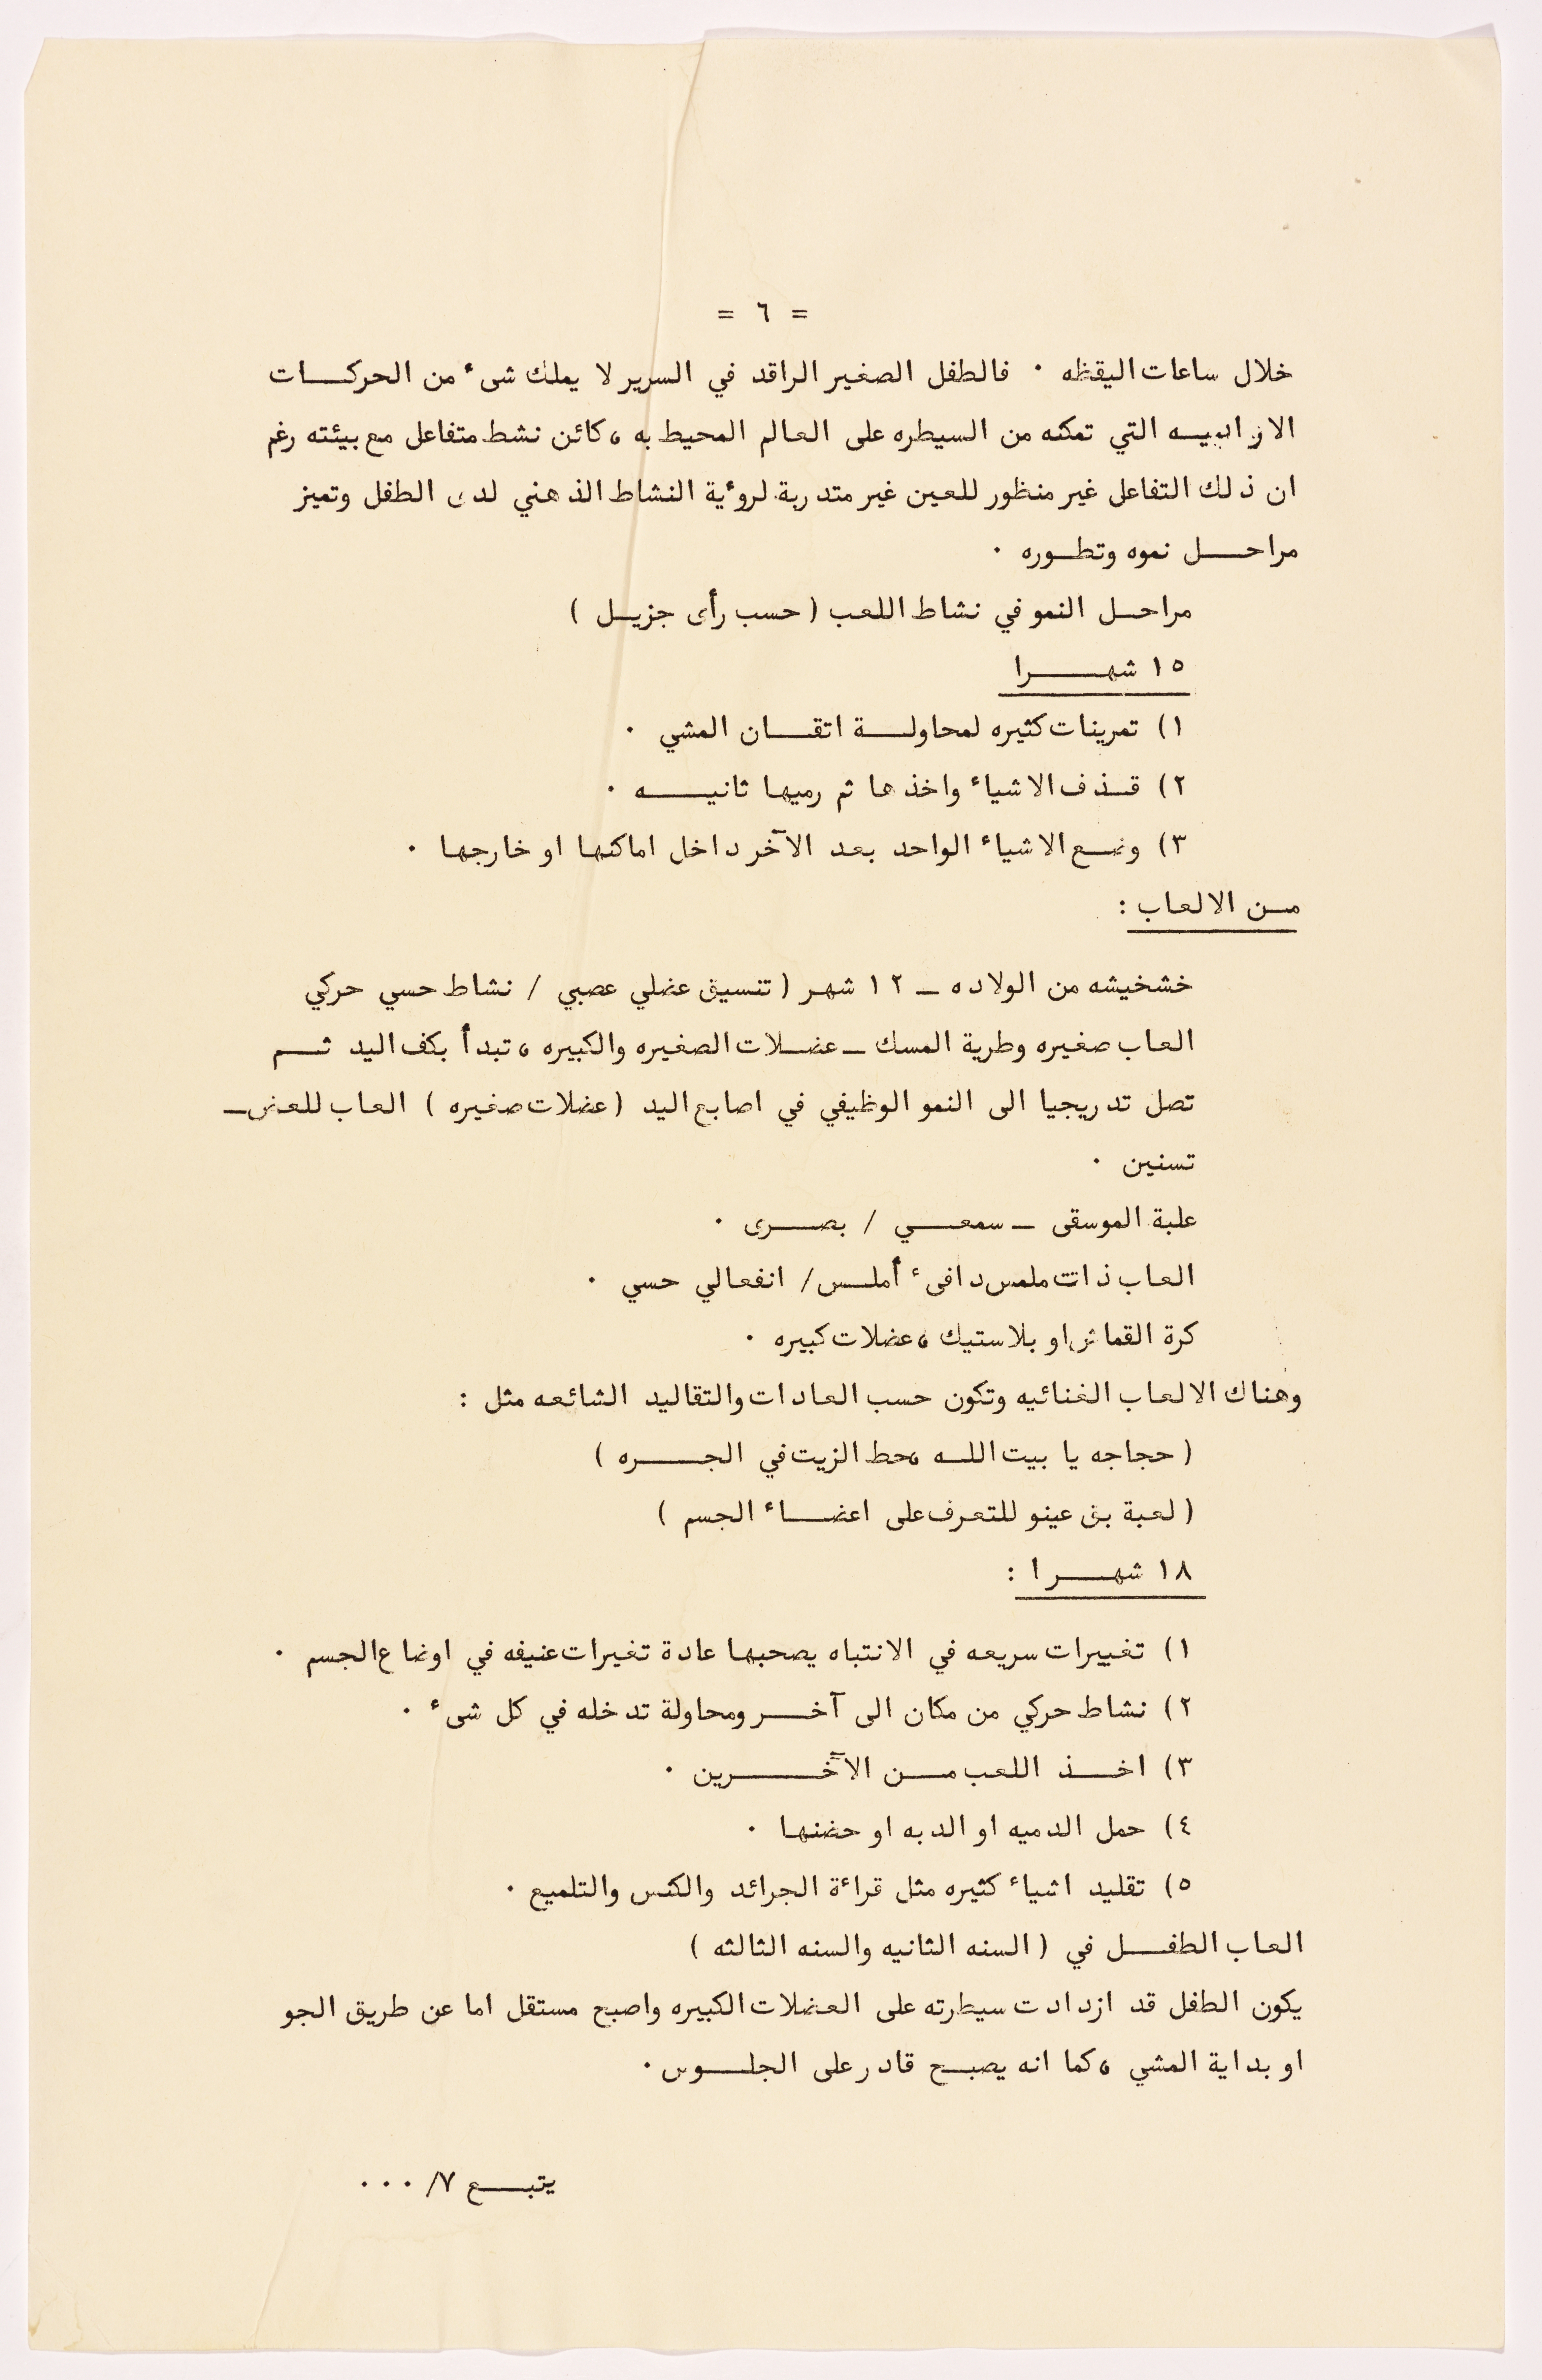 = ٦ =
خلال ساعات اليقظه . فالطفل الصغير الراقد في السرير لا يملك شىء من الحركــات
التي تمكنه من السيطره على العالم المحيط به ، كائن نشط متفاعل مع بيئته رغم
ان ذلك التفاعل غير منظور للعين غير متدربة لروءية النشاط الذهني لدى الطفل وتميز
مراحــل نموه وتطـوره .
مراحـل النمو في نشاط اللعب ( حسب رأى جزيـل )
١٥ شهــرا
١) تمرينات كثيره لمحاولــة اتقــان المشي .
٢) قـذف الاشياء واخذها ثم رميها ثانيــه .
٣) وضـع الاشياء الواحد بعد الآخر داخل اماكنها او خارجها .
مـن الالعاب :
خشخيشه من الولاده ـ ١٢ شهر ( تنسيق عضلي عصبي / نشاط حسي حركي
العاب صغيره وطرية المسك ـ عضـلات الصغيره والكبيره ، تبدأ بكف اليد ثــم
تصل تدريجيا الى النمو الوظيفي في اصابع اليد ( عضلات صغيره ) العاب للعض ـ
تسنين .
علبة الموسقى ـ سمعــي / بصــرى .
العاب ذات ملمس دافىء أملـس / انفعالي حسي .
كرة القماش او بلاستيك ، عضلات كبيره .
وهناك الالعاب الغنائيه وتكون حسب العادات والتقاليد الشائعه مثل :
( حجاجه يا بيت اللــه ،حط الزيت في الجــره )
( لعبة بق عينو للتعرف على اعضــاء الجسم )
١٨ شهــرا :
١) تغييرات سريعه في الانتباه يصحبها عادة تغيرات عنيفه في اوضاع الجسم .
٢) نشاط حركي من مكان الى آخــر ومحاولة تدخله في كل شىء .
٣) اخــذ اللعب مــن الآخــرين .
٤) حمل الدميه او الدبه او حضنها .
٥) تقليد اشياء كثيره مثل قراءة الجرائد والكنس والتلميع .
العاب الطفــل في ( السنه الثانيه والسنه الثالثه )
يكون الطفل قد ازدادت سيطرته على العضلات الكبيره واصبح مستقل اما عن طريق الحبو
او بداية المشي ، كما انه يصبـح قادر على الجلــوس .
يتبــع ٧/ ...